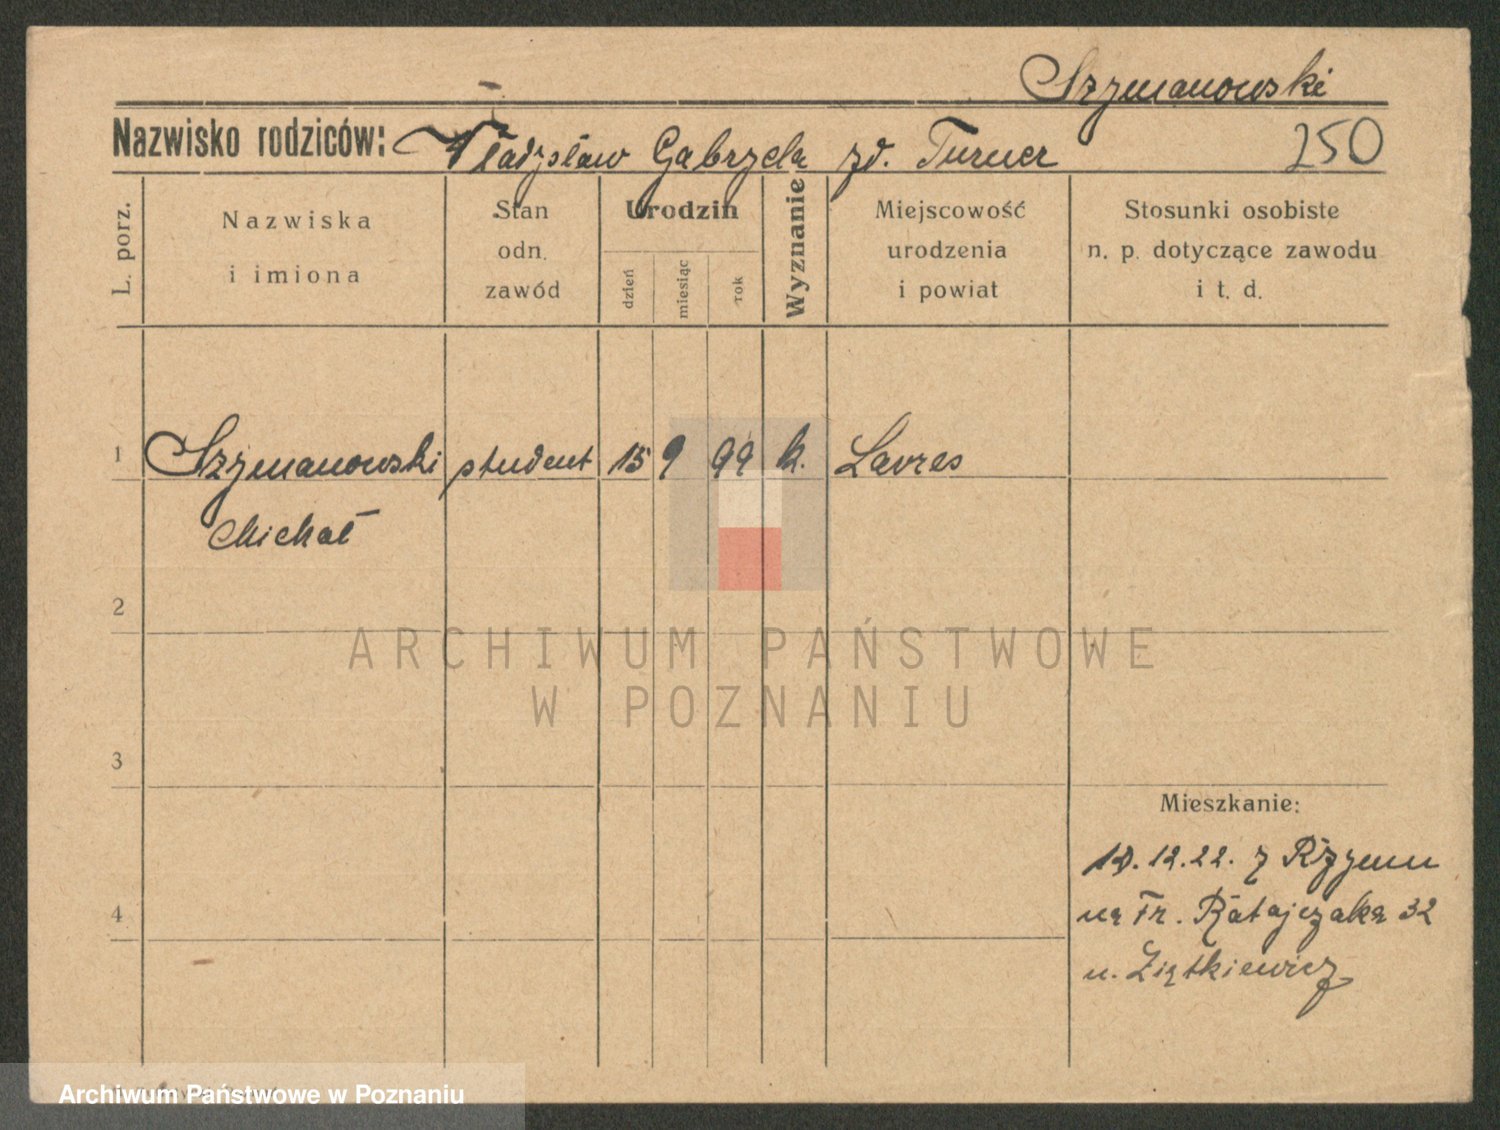 Szymanowski
Nazwisko rodziców: Władysław Gabryela zd. Turner 250
L. porz.
Nazwiska
i imiona
Stan
odn.
zawód
Urodzin
dzień
miesiąc
rok
Wyznanie
Miejscowość
urodzenia
i powiat
Stosunki osobiste
n. p. dotyczące zawodu
i t. d.
1 Szymanowski student 15 9 99 k. Lavres
Michał
2
3
4
Mieszkanie:
12.22. z Rzymu
na Fr. Ratajczaka 32
u. Ziętkiewicz
ARCHIWUM PAŃSTWOWE
W POZNANIU
Archiwum Państwowe w Poznaniu